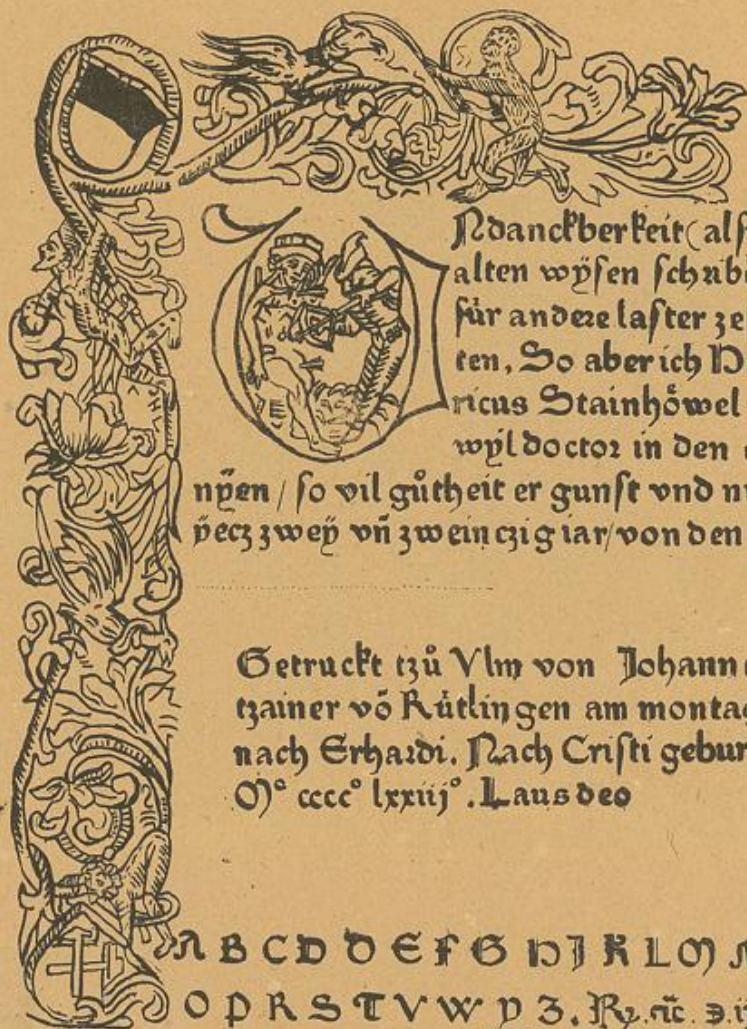 Ndanckberkeit (als
alten wÿsen schrib
für andere laster ze
ten, So aber ich H
ricus Stainhöwel
wÿl doctor in den
nÿen / so vil gůtheit er gunst vnd
ÿecz zweÿ vñ zweinczig iar / von den
Getruckt tzů Vlm von Johann
tzainer võ Rütlingen am montag
nach Erhardi. Nach Cristi gebur
Mº ccccº lxxiijº. Laus deo
A B C D D E F G H J K L M
O P R S T V W Y Z .